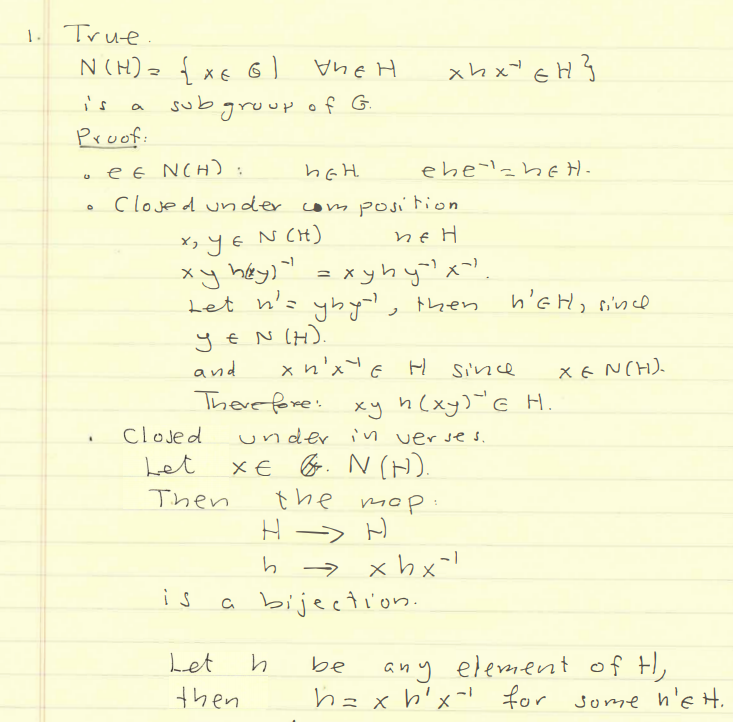 1. True.
N(H) = { x ∈ G | ∀h ∈ H xhx⁻¹ ∈ H }
is a subgroup of G.
Proof:
• e ∈ N(H) : h∈H ehe⁻¹=h∈H.
• Closed under composition
x, y ∈ N(H) h∈H
xy h(xy)⁻¹ = xyhy⁻¹x⁻¹.
Let h' = yhy⁻¹, then h'∈H, since
y ∈ N(H).
and xh'x⁻¹ ∈ H since x ∈ N(H).
Therefore: xy h(xy)⁻¹ ∈ H.
• Closed under inverses.
Let x ∈ N(H).
Then the map:
H → H
h → xhx⁻¹
is a bijection.
Let h be any element of H,
then h = xh'x⁻¹ for some h'∈H.